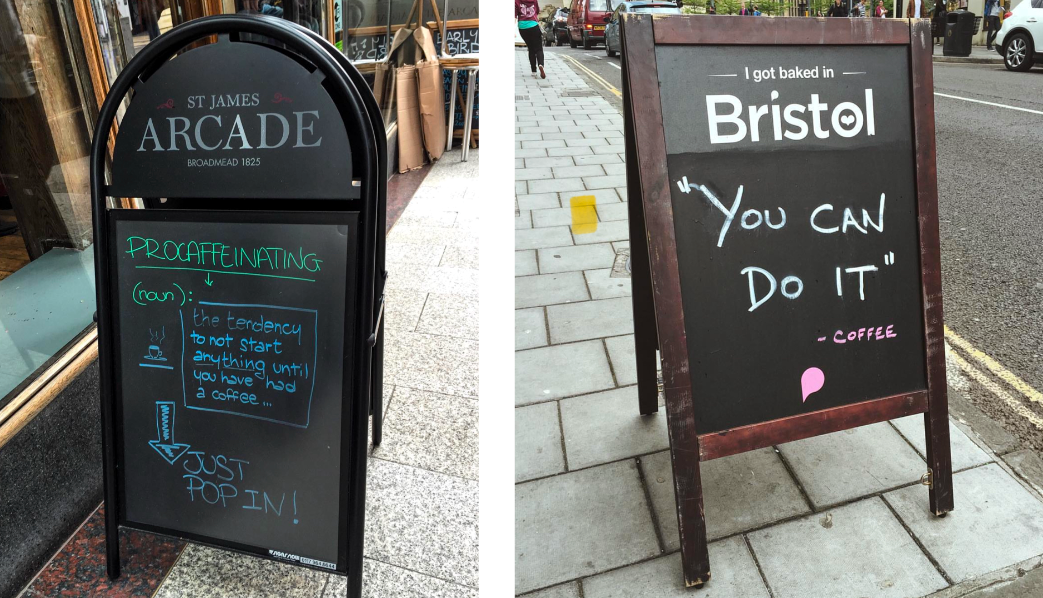 ST JAMES
ARCADE
BROADMEAD 1825
PROCAFFEINATING
(noun):
the tendency
to not start
anything until
you have had
a coffee...
JUST
POP IN!
ARLY
BIRD
I got baked in
Bristol
"YOU CAN
DO IT"
- COFFEE